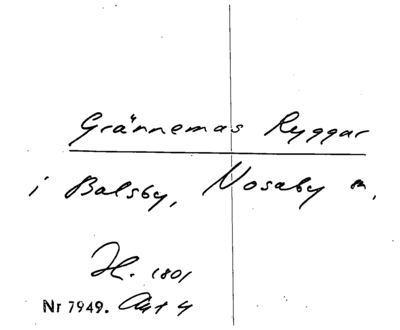 Grännemas Ryggar
i Balsby, Nosaby sn,
H. 1801
Nr 7949. Akt 4